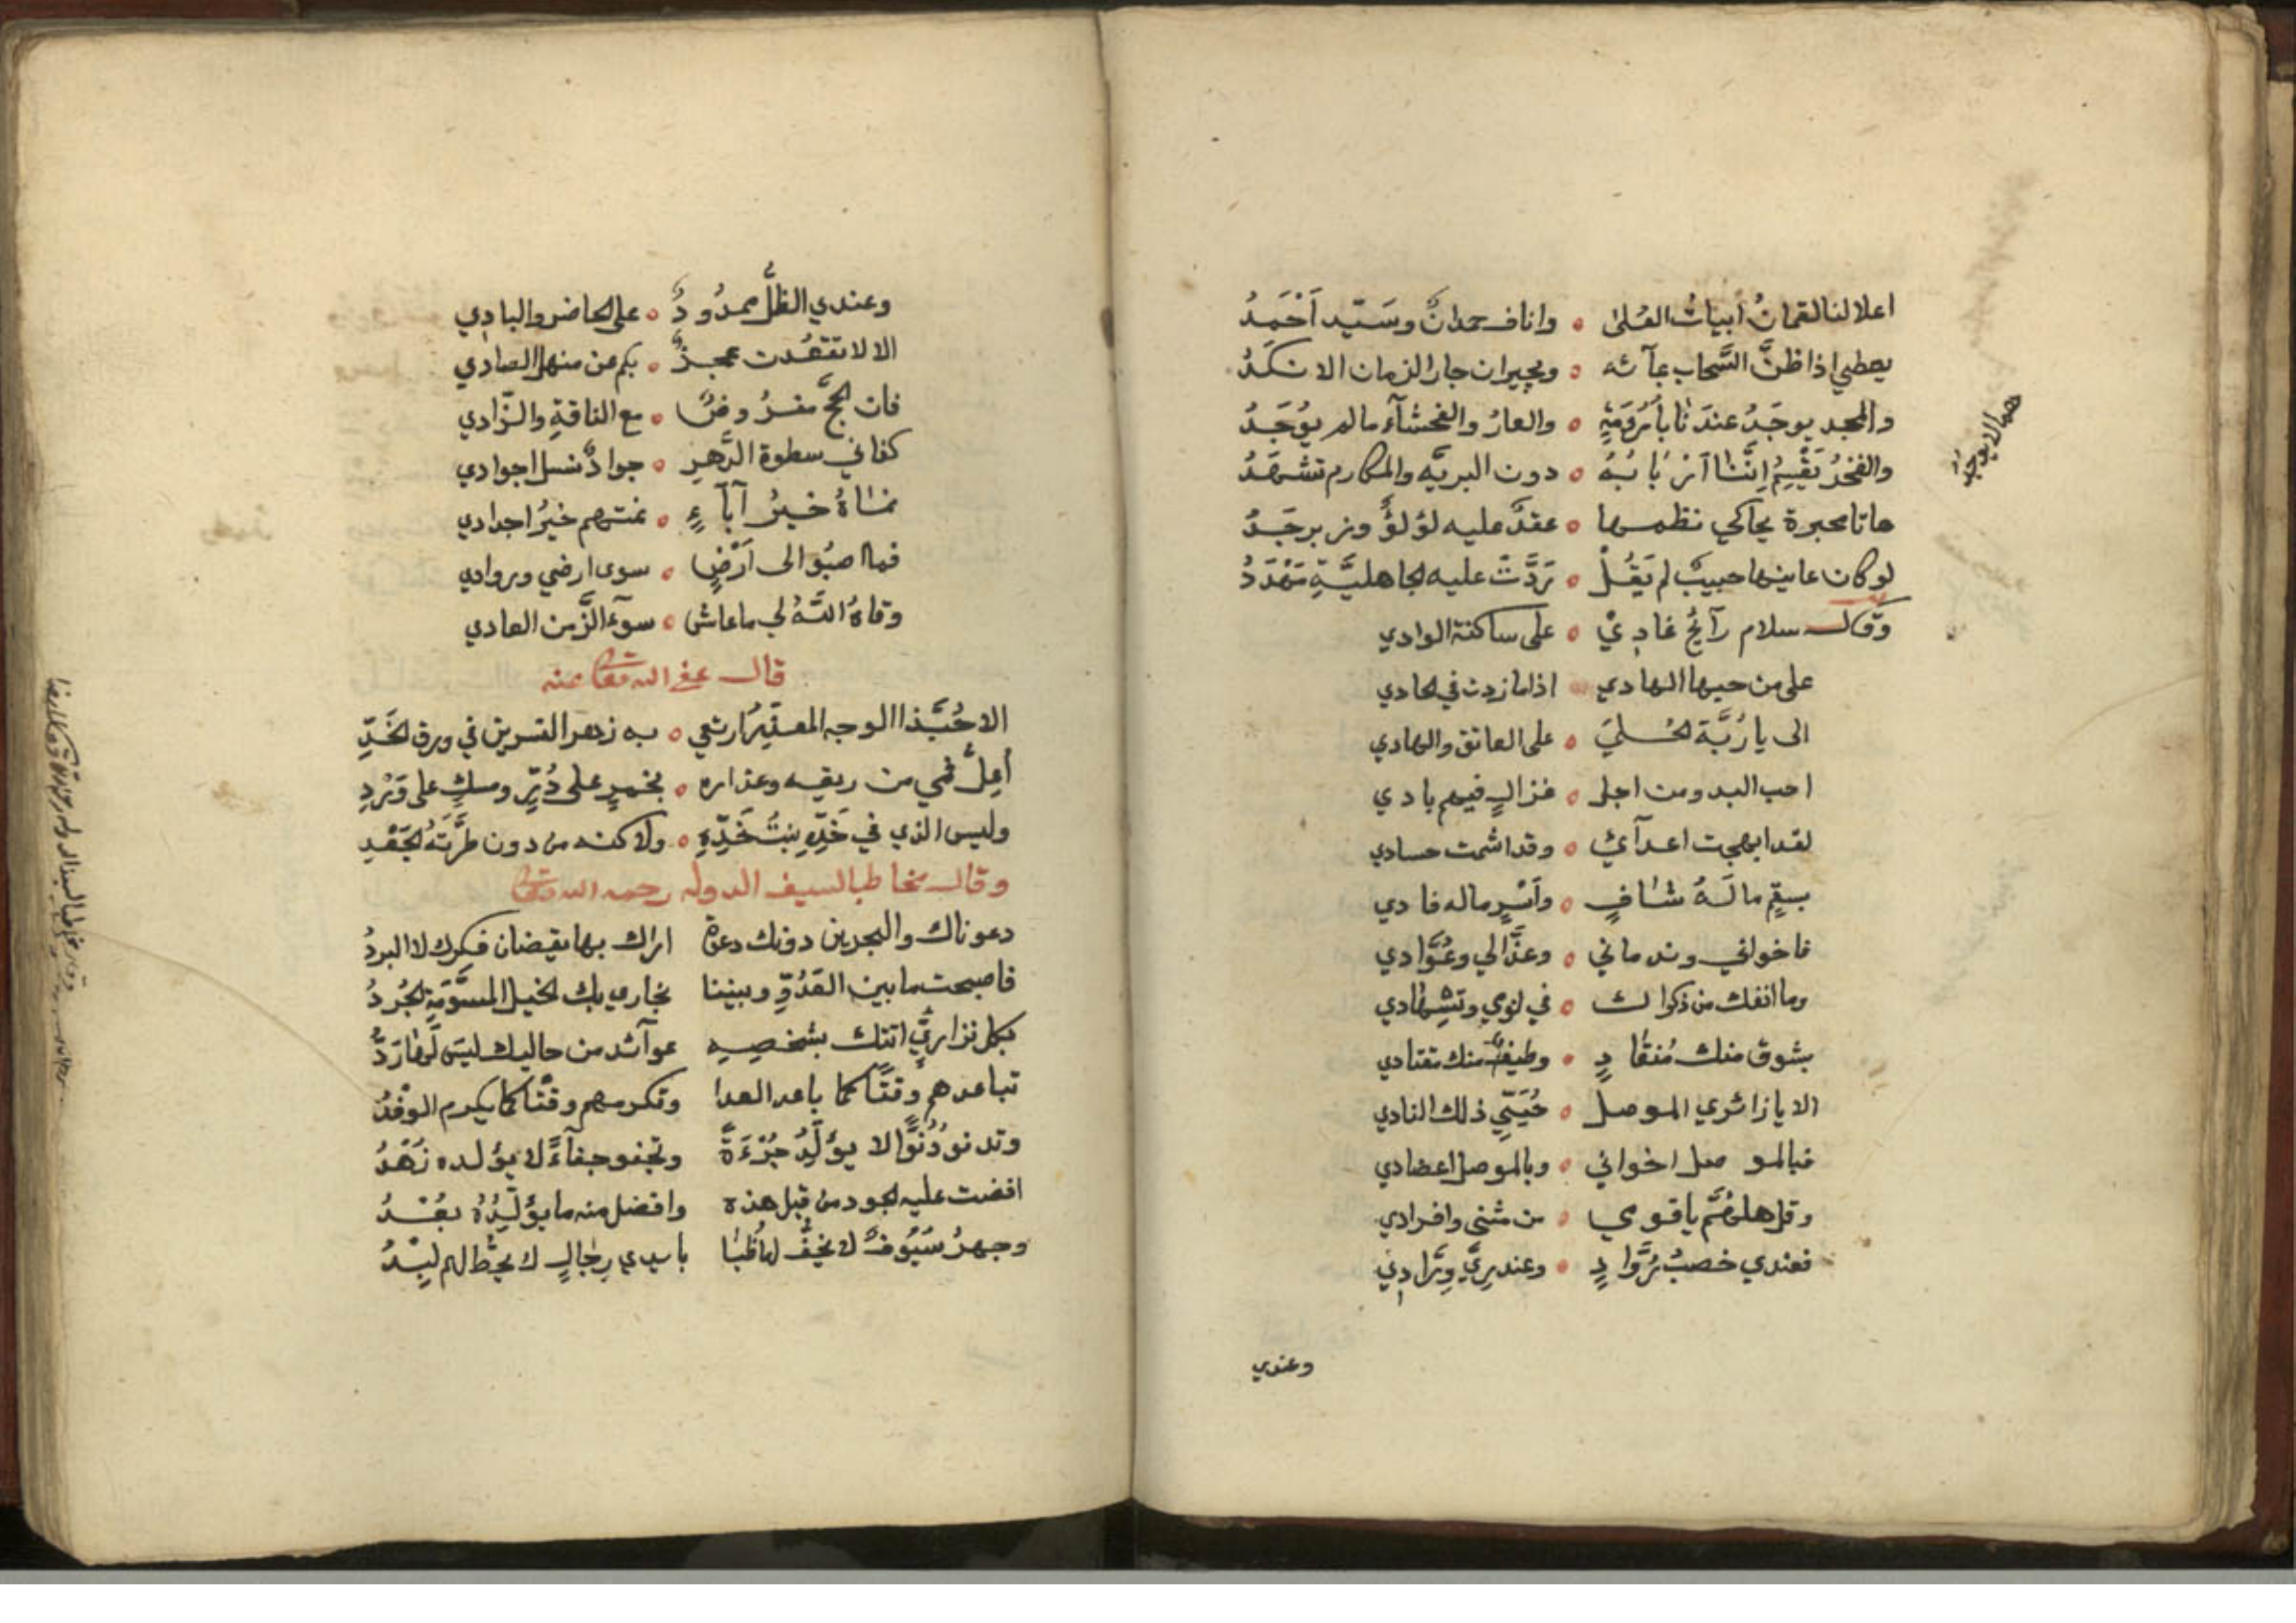 اعلا لنا لقمانُ أبيات العُلىٰ ٥ واناف حمدانٌ وسَيّد اَحْمَدُ
يعطي اذا ظنَّ السَّحاب بمآئه ٥ ويجيران جار الزمان الانكَدُ
والمجد يوجَدُ عندَنا ٥ والعارُ والفحشآء مالم يوُجَدُ
والفخرُ يُقْسِمُ اِنَّنا ٥ دون البريَّه والمكارم تشهَدُ
هاتا محبرة يحاكي نظمها ٥ عقدٌ عليه لؤلؤٌ وزبرجَدُ
لوكان عاينها حبيبٌ لم يَقُلْ ٥ عليه الجاهليَّةِ
وقال سلام رآئحٌ غادِيْ ٥ على ساكنة الوادي
على من حبها الهادي اذاما زدت في الحادي
الى يا رُبَّة الحُسليَ ٥ على العاتق والهادي
احب البدو من اجل ٥ غزالٍ فيهم بادي
لقد ابهجت اعدآئي ٥ وقد اشمت حسادي
بسقمٍ مالَهُ شافٍ ٥ وأسْرٍ ماله فادي
فاخواني وندماني ٥ وعذَّالي وعُوَّادي
وما انفك من ذكراك ٥ في نومي وتسهادي
بشوق منك مُنقادٍ ٥ وطيفٌ منك معتادي
الا يا زائري الموصل ٥ حُيَيّي ذلك النادي
فبالموصل اخواني ٥ وبالموصل اعضادي
وقل هلمُمَّ ياقومي ٥ من مثنى وافرادي
فعندي خصبُ رُوَّادٍ ٥ وعندي رِيُّ ورَّادِي
وعندي
هوالايوجَدُ
وعندي الظلُّ ممدُودٌ ٥ على الحاضر والبادي
الا لا تقعُدت عجزٌ ٥ بكم عن منهل الصادي
فان الحجَّ مفرُوضٌ ٥ مع الناقةِ والزّادي
كفاني سطوة الدَّهرِ ٥ جوادٌ نسل اجوادي
نماهُ خيرُ آبآءٍ ٥ نمتهم خيرُ اجدادي
فما اصبُو الى اَرْضٍ ٥ سوى ارضي وروادي
وقاهُ اللَّهُ لي ماعاش ٥ سوءَ الزَّمن العادي
قال عفى الله تعالى عنه
الا حُبَّذا الوجه المعذّرُ ارتعي ٥ به زهر النسرين في ورق الخَدِّ
أعِلُّ فمي من ريقه وعذاره ٥ بخمرٍ على دُرٍّ ومسكٍ على وَرْدِ
وليس الذي في خَدِّهِ نبتُ خَدِّهِ ٥ ولاكنه من دون طرَّتهُ الجَعْدِ
وقال مخاطبا لسيف الدوله رحمه الله تعالى
دعوناك والبحرين دونك دعوةً اراك بها يقضان فكرك لا البردُ
فاصبحت مابين العَدُوِّ وبيننا تجاري بك الخيل المسوَّمة الجُردُ
بكل نزاريٍّ اتتك بشخصِهِ عوآئد من حاليك ليسَ لَها رَدُّ
تباعدهم وقتًا كما باعد العدا وتكرمهم وقتًا كما يكرم الوفْدُ
وتدنو دُنُوًّا لا يؤلِّدُ جُرْءَةً وتجفو جفآءً لا يؤلده زَهْدُ
افضت عليه الجود من قبل هذه وافضل منه مايؤلّدهُ بعْدُ
وحمرُ سُيُوفٌ لا تخفُّ لها ظُبَا بايدي رجالٍ لا يحطُّ لهم لِبْدُ